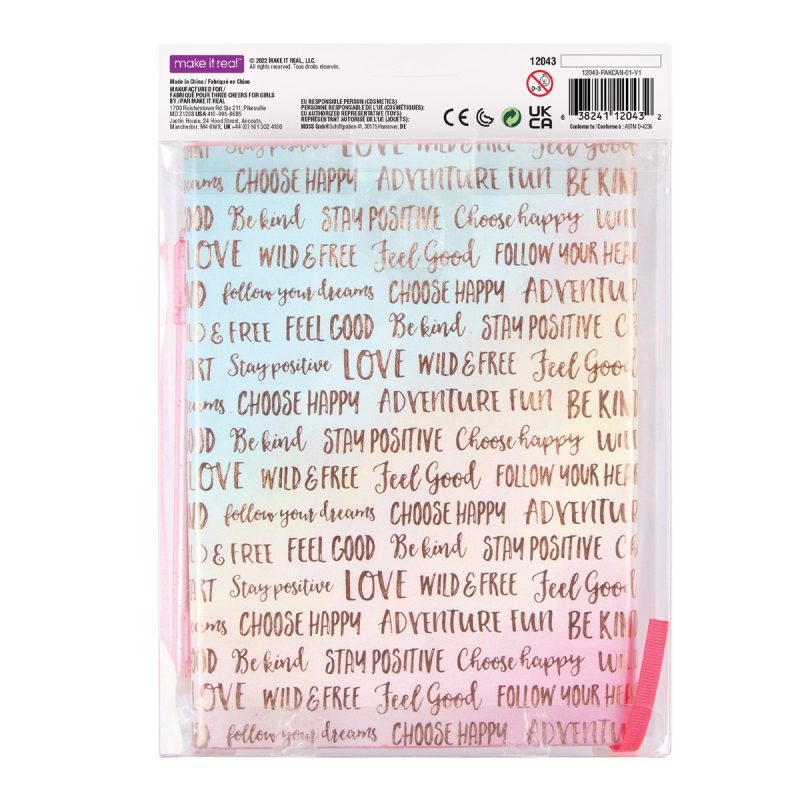 make it real™
© 2022 MAKE IT REAL, LLC.
All rights reserved. Tous droits réservés.
Made in China / Fabriqué en Chine
MANUFACTURED FOR /
FABRIQUÉ POUR THREE CHEERS FOR GIRLS
BY /PAR MAKE IT REAL
1700 Reisterstown Rd Ste 211, Pikesville
MD 21208 USA 410-995-8685
Jactin House, 24 Hood Street, Ancoats,
Manchester, M4 6WX, UK +44 (0) 161 302 4100
EU RESPONSIBLE PERSON (COSMETICS)
PERSONNE RESPONSABLE DE L'UE (COSMÉTIQUES):
EU AUTHORIZED REPRESENTATIVE (TOYS)
REPRÉSENTANT AUTORISÉ DE L'UE (JOUETS):
MDSS GmbH Schiffgraben 41, 30175 Hannover, DE
12043
0-3
CE
UK
CA
12043-PAKCAN-01-V1
6 38241 12043 2
Conforms to / Conforme à : ASTM D-4236
ART Stay positive LOVE WILD & FREE Feel Good
eams CHOOSE HAPPY ADVENTURE FUN BE KIND
OOD Be kind STAY POSITIVE Choose happy WIL
LOVE WILD & FREE Feel Good FOLLOW YOUR HEAR
ND follow your dreams CHOOSE HAPPY ADVENTU
LD & FREE FEEL GOOD Be kind STAY POSITIVE C
ART Stay positive LOVE WILD & FREE Feel Good
eams CHOOSE HAPPY ADVENTURE FUN BE KIND
OOD Be kind STAY POSITIVE Choose happy WIL
LOVE WILD & FREE Feel Good FOLLOW YOUR HEAR
ND follow your dreams CHOOSE HAPPY ADVENTU
LD & FREE FEEL GOOD Be kind STAY POSITIVE CH
ART Stay positive LOVE WILD & FREE Feel Good
eams CHOOSE HAPPY ADVENTURE FUN BE KIND
OOD Be kind STAY POSITIVE Choose happy WIL
LOVE WILD & FREE Feel Good FOLLOW YOUR HEAR
ND follow your dreams CHOOSE HAPPY ADVENTU